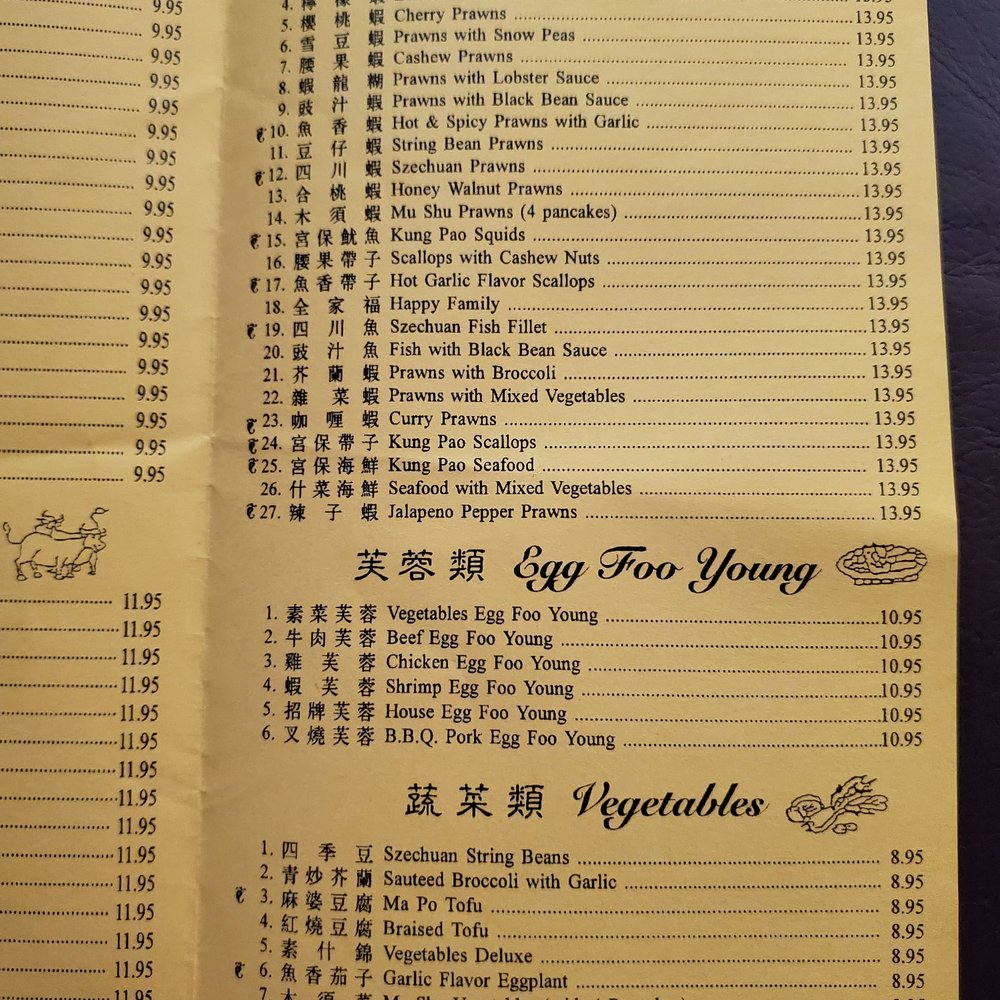 9.95
9.95
9.95
9.95
9.95
9.95
9.95
9.95
9.95
9.95
9.95
9.95
9.95
9.95
9.95
9.95
9.95
9.95
9.95
11.95
11.95
11.95
11.95
11.95
11.95
11.95
11.95
11.95
11.95
11.95
11.95
11.95
11.95
4. 檸 檬 蝦
5. 櫻 桃 蝦 Cherry Prawns 13.95
6. 雪 豆 蝦 Prawns with Snow Peas 13.95
7. 腰 果 蝦 Cashew Prawns 13.95
8. 蝦 龍 糊 Prawns with Lobster Sauce 13.95
9. 豉 汁 蝦 Prawns with Black Bean Sauce 13.95
10. 魚 香 蝦 Hot & Spicy Prawns with Garlic 13.95
11. 豆 仔 蝦 String Bean Prawns 13.95
12. 四 川 蝦 Szechuan Prawns 13.95
13. 合 桃 蝦 Honey Walnut Prawns 13.95
14. 木 須 蝦 Mu Shu Prawns (4 pancakes) 13.95
15. 宮保魷魚 Kung Pao Squids 13.95
16. 腰果帶子 Scallops with Cashew Nuts 13.95
17. 魚香帶子 Hot Garlic Flavor Scallops 13.95
18. 全 家 福 Happy Family 13.95
19. 四 川 魚 Szechuan Fish Fillet 13.95
20. 豉 汁 魚 Fish with Black Bean Sauce 13.95
21. 芥 蘭 蝦 Prawns with Broccoli 13.95
22. 雜 菜 蝦 Prawns with Mixed Vegetables 13.95
23. 咖 喱 蝦 Curry Prawns 13.95
24. 宮保帶子 Kung Pao Scallops 13.95
25. 宮保海鮮 Kung Pao Seafood 13.95
26. 什菜海鮮 Seafood with Mixed Vegetables 13.95
27. 辣 子 蝦 Jalapeno Pepper Prawns 13.95
芙蓉類 Egg Foo Young
1. 素菜芙蓉 Vegetables Egg Foo Young 10.95
2. 牛肉芙蓉 Beef Egg Foo Young 10.95
3. 雞 芙 蓉 Chicken Egg Foo Young 10.95
4. 蝦 芙 蓉 Shrimp Egg Foo Young 10.95
5. 招牌芙蓉 House Egg Foo Young 10.95
6. 叉燒芙蓉 B.B.Q. Pork Egg Foo Young 10.95
蔬菜類 Vegetables
1. 四 季 豆 Szechuan String Beans 8.95
2. 青炒芥蘭 Sauteed Broccoli with Garlic 8.95
3. 麻婆豆腐 Ma Po Tofu 8.95
4. 紅燒豆腐 Braised Tofu 8.95
5. 素 什 錦 Vegetables Deluxe 8.95
6. 魚香茄子 Garlic Flavor Eggplant 8.95
7. 木 須 菜